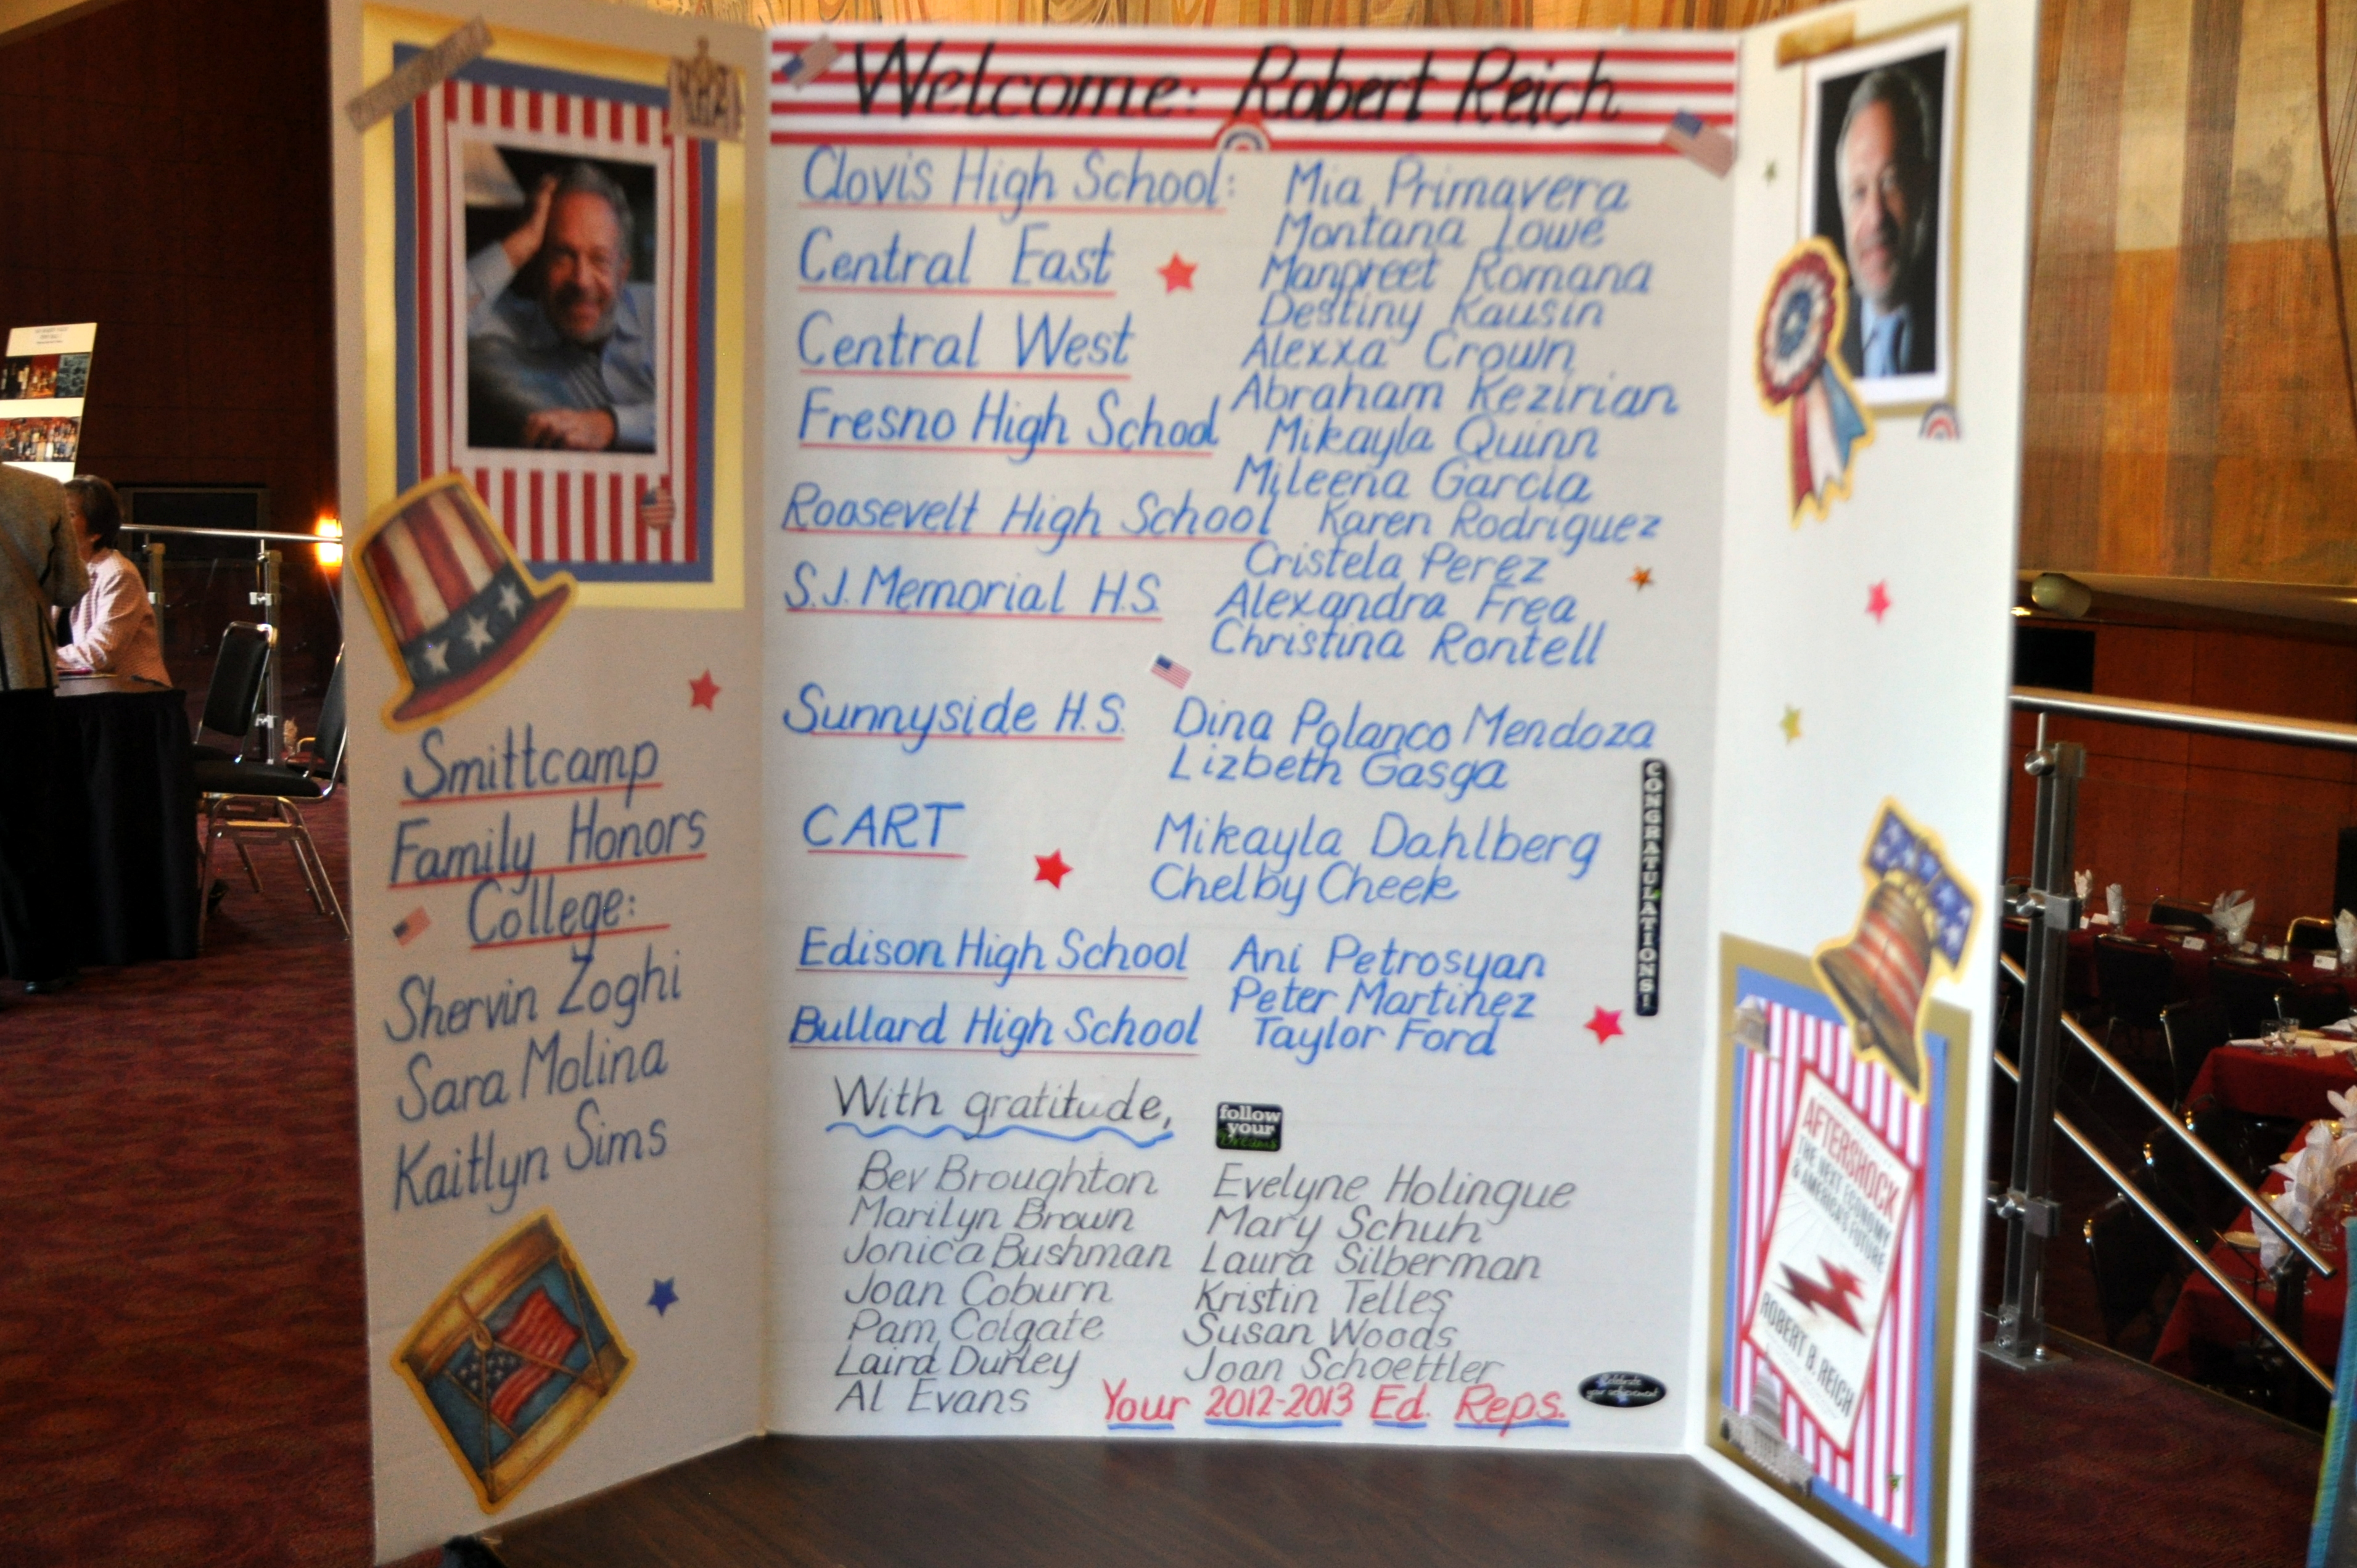 Welcome: Robert Reich
Smittcamp
Family Honors
College:
Shervin Zoghi
Sara Molina
Kaitlyn Sims
Clovis High School: Mia Primavera
Montana Lowe
Central East Manpreet Romana
Destiny Kausin
Central West Alexxa Crown
Abraham Kezirian
Fresno High School Mikayla Quinn
Mileena Garcia
Roosevelt High School Karen Rodriguez
Cristela Perez
S.J. Memorial H.S. Alexandra Frea
Christina Rontell
Sunnyside H.S. Dina Polanco Mendoza
Lizbeth Gasga
CART Mikayla Dahlberg
Chelby Cheek
CONGRATULATIONS!
Edison High School Ani Petrosyan
Peter Martinez
Bullard High School Taylor Ford
With gratitude,
follow
your
Dreams
Bev Broughton Evelyne Holingue
Marilyn Brown Mary Schuh
Jonica Bushman Laura Silberman
Joan Coburn Kristin Telles
Pam Colgate Susan Woods
Laird Durley Joan Schoettler
Al Evans
Your 2012-2013 Ed. Reps.
Celebrate
your achievement
AFTERSHOCK
THE NEXT ECONOMY
& AMERICA'S FUTURE
ROBERT B. REICH